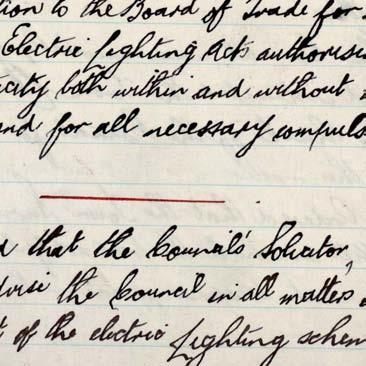 ion to the Board of Trade for
Electric Lighting Acts authorisi
city both within and without
and for all necessary compuls
d that the Council's Solicitor,
dvise the Council in all matters
t of the electric lighting schem